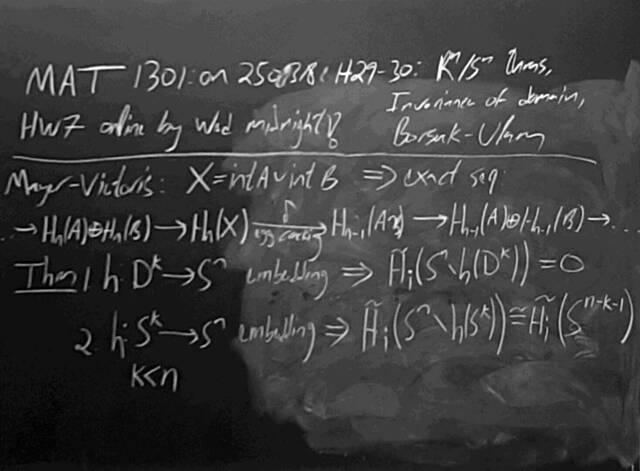 MAT 1301: on 250318: H29-30: Rⁿ/Sⁿ thms,
Invariance of domain,
HW7 online by Wed midnight! Borsuk-Ulam
Mayer-Vietoris: X = int A ∪ int B ⇒ exact seq
... → Hₙ(A)⊕Hₙ(B) → Hₙ(X) → Hₙ₋₁(A∩B) → Hₙ₋₁(A)⊕Hₙ₋₁(B) → ...
Thm 1 h: Dᵏ → Sⁿ embedding ⇒ H̃ᵢ(Sⁿ \ h(Dᵏ)) = 0
2. h: Sᵏ → Sⁿ embedding ⇒ H̃ᵢ(Sⁿ \ h(Sᵏ)) ≅ H̃ᵢ(Sⁿ⁻ᵏ⁻¹)
k<n